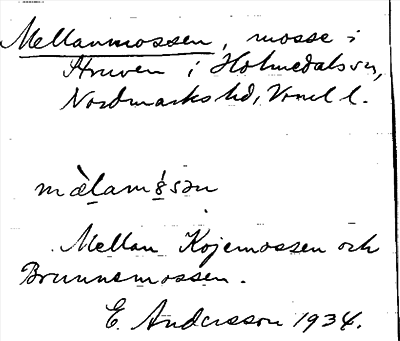 Mellanmossen, mosse i
Struven i Holmedals sn,
Nordmarks hd, Vrml l.
mɛ̀lamɵ̀sən
Mellan Kojemossen och
Brunnsmossen.
E. Andersson 1934.